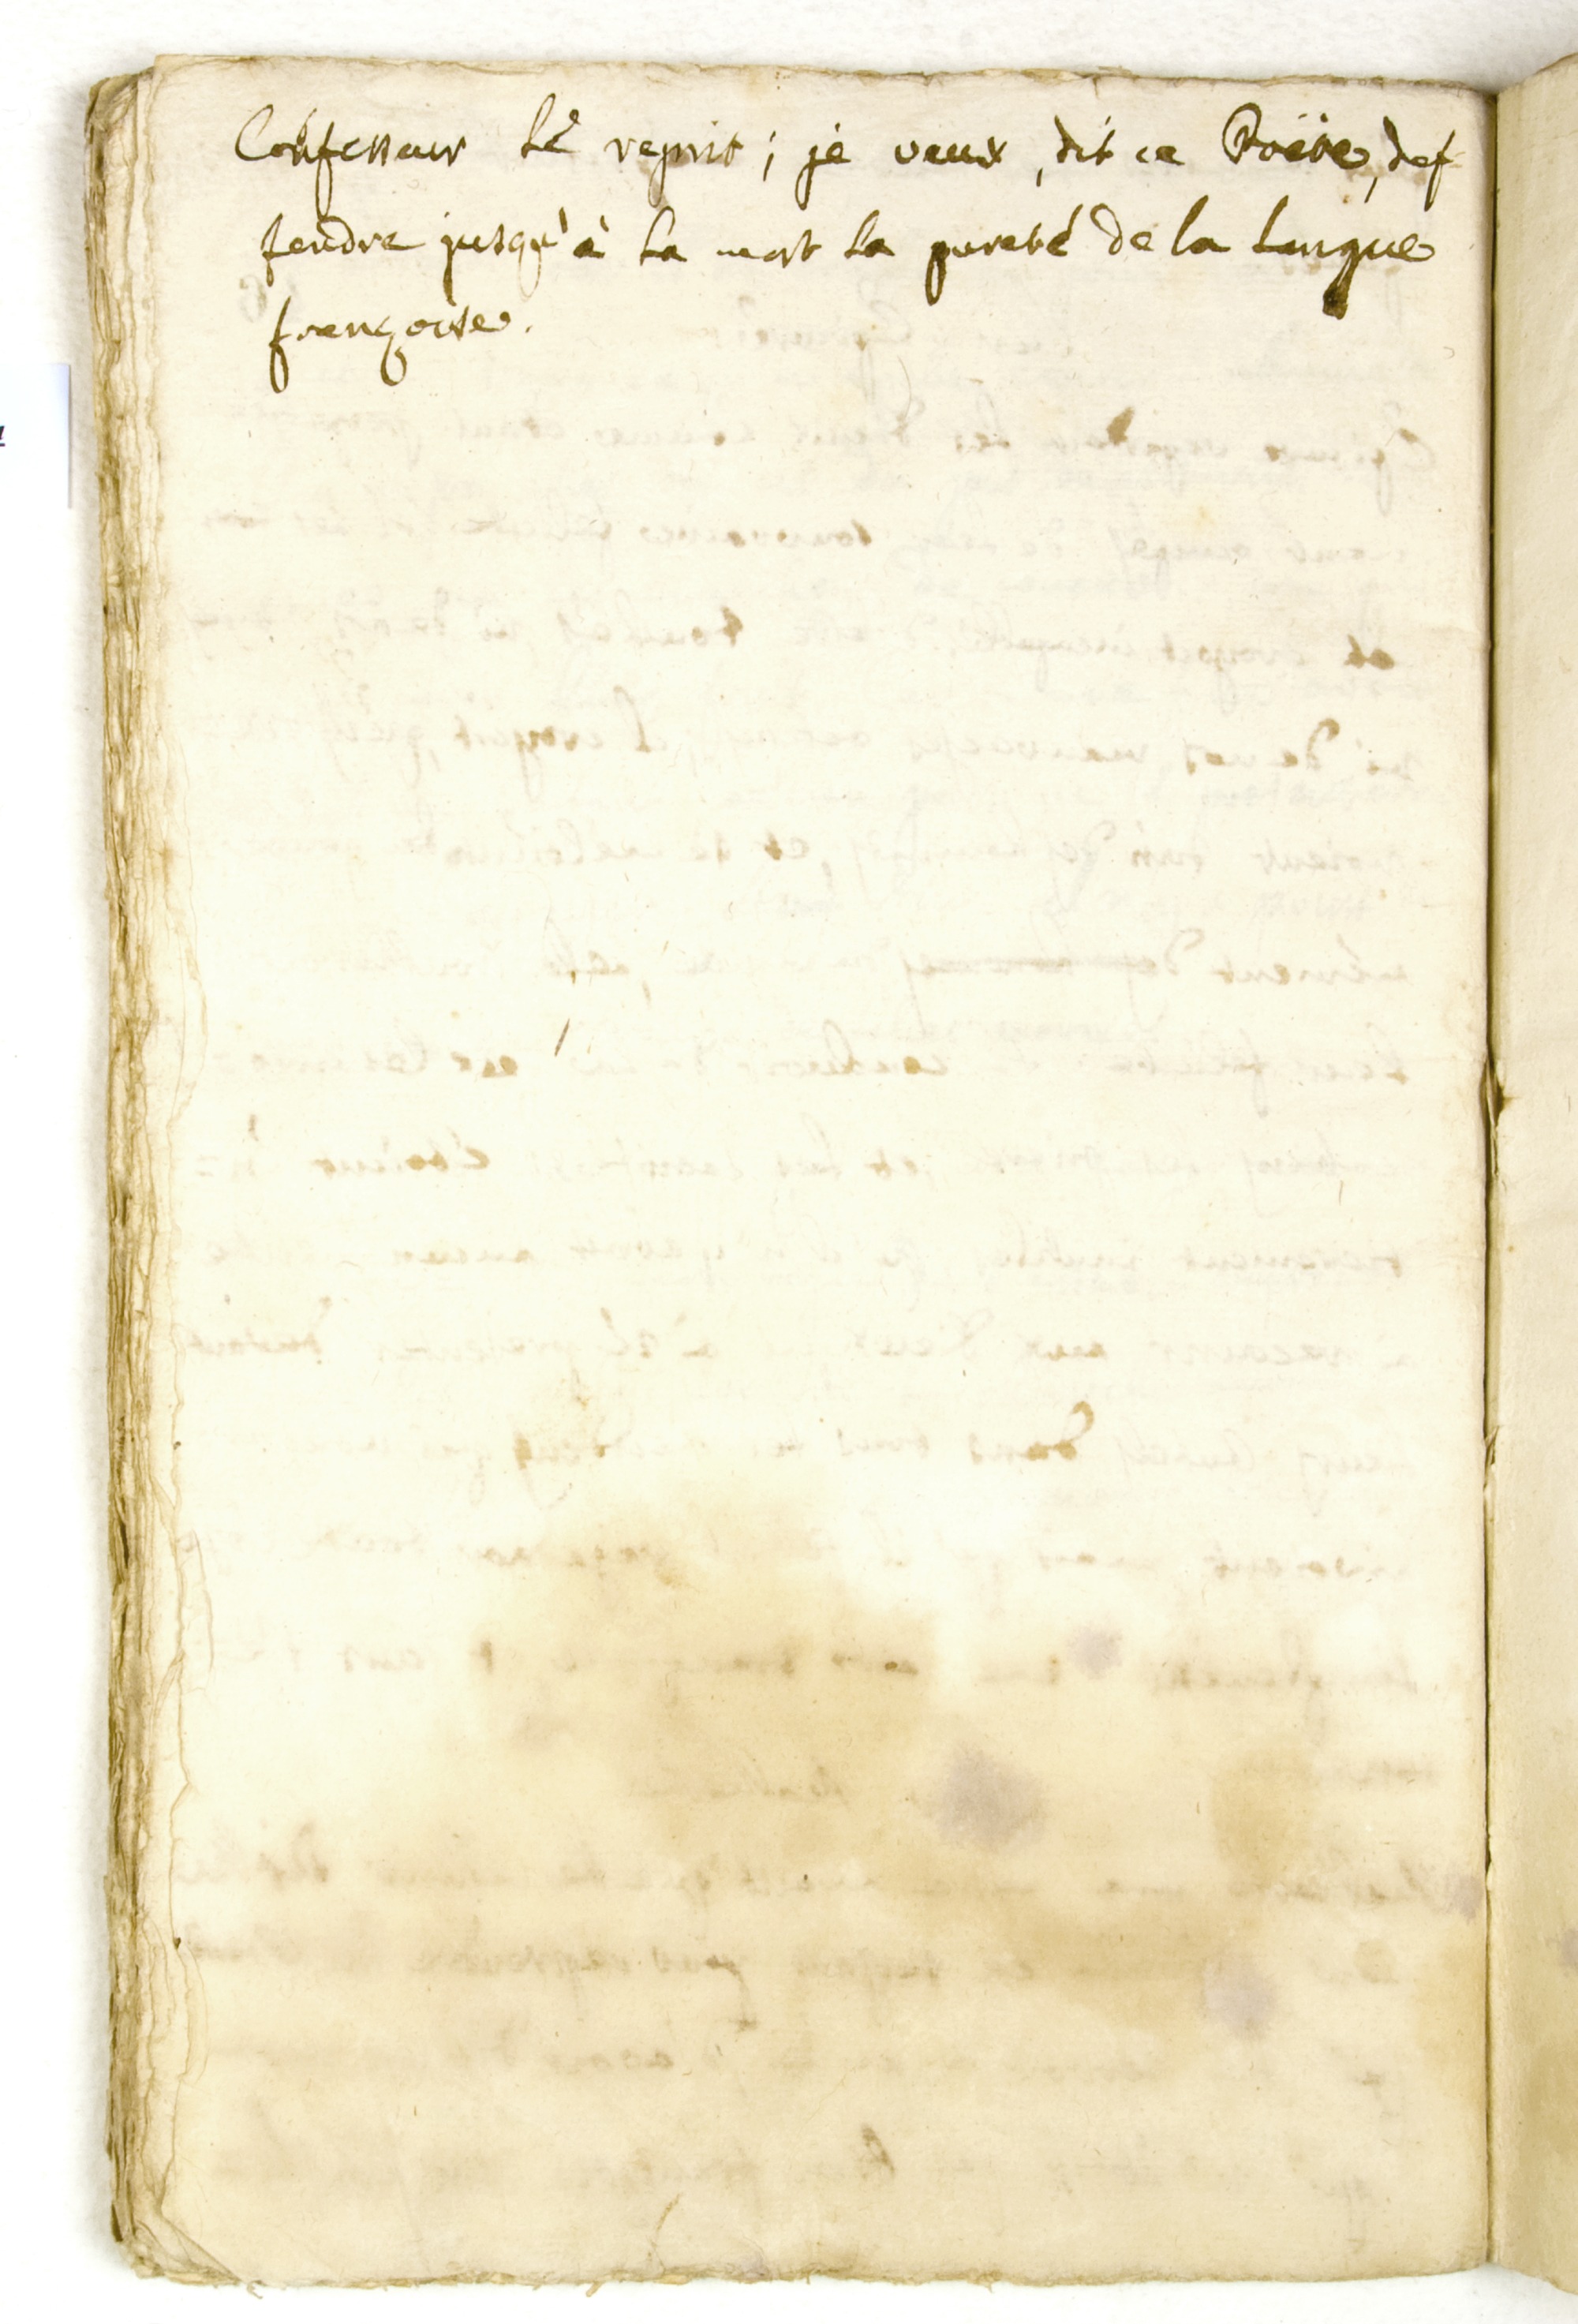 Confesseur le reprit ; je veux, dit ce Poëte, def
fendre jusqu'à la mort la pureté de la langue
françoise.